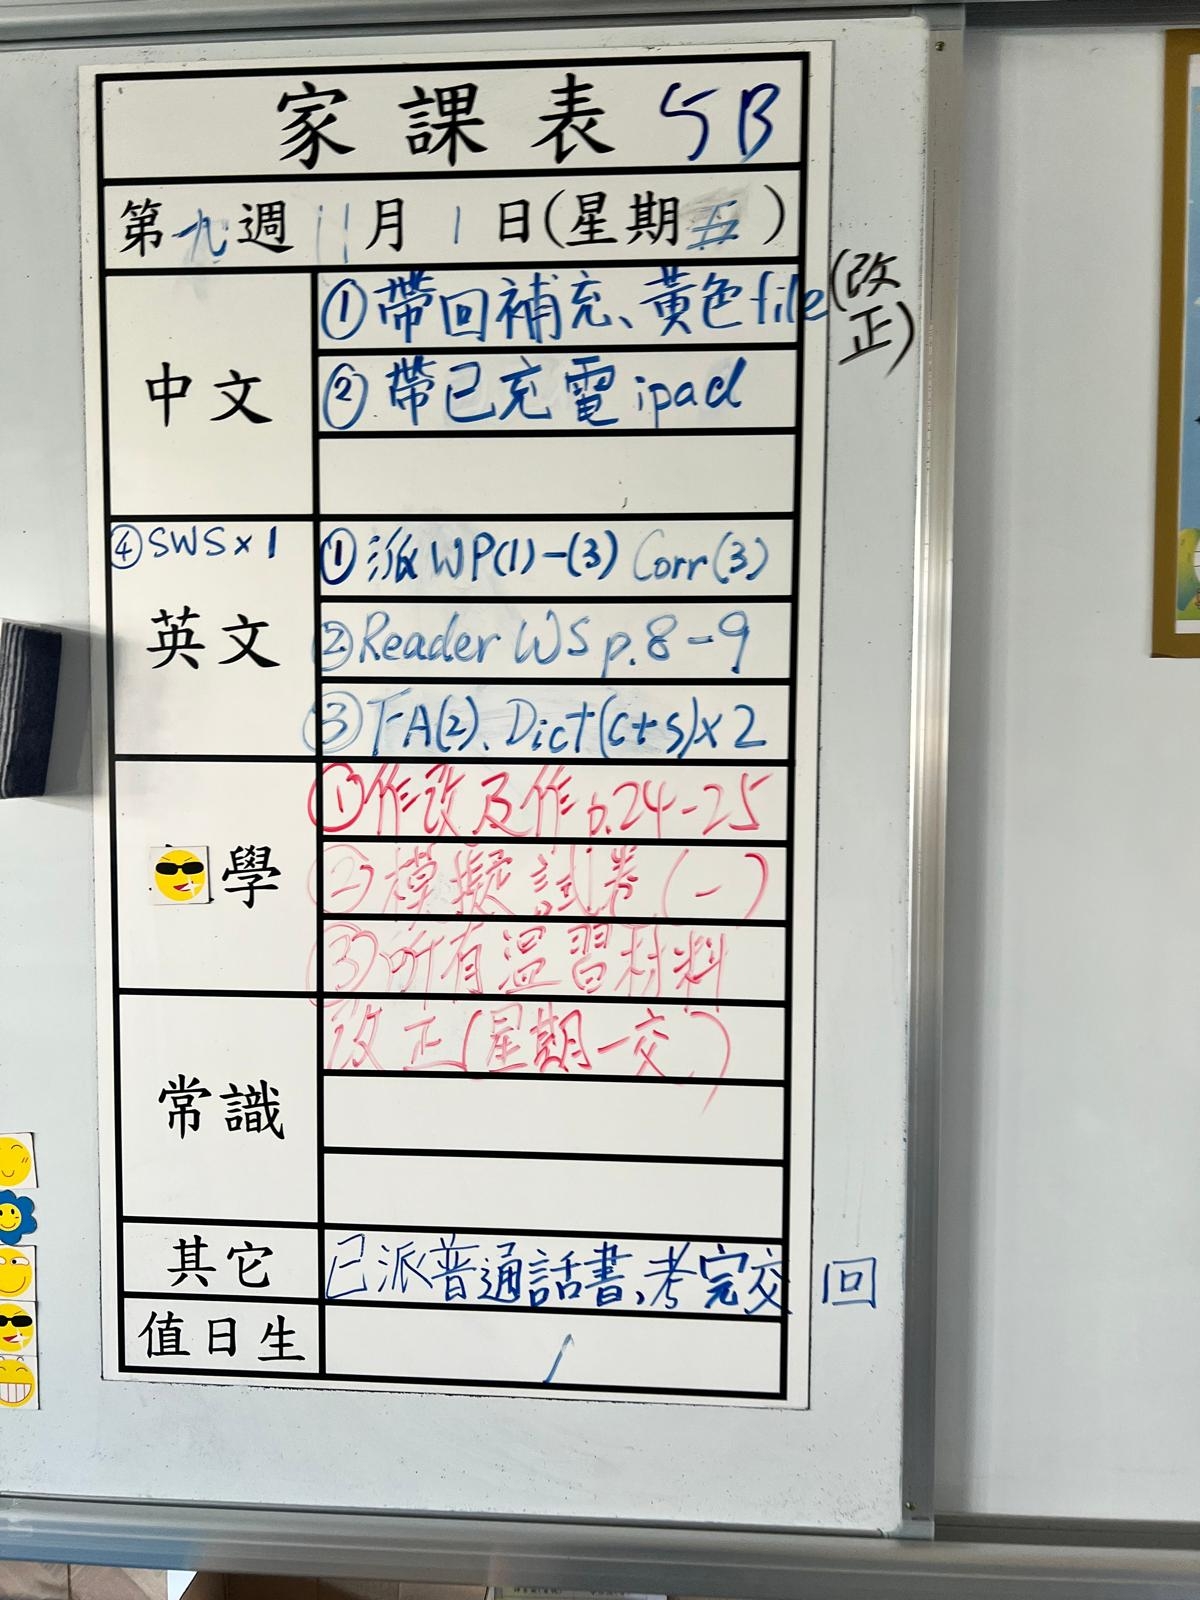 家課表 5B
第九週 11月 1日(星期五)
中文
①帶回補充、黃色file(改正)
②帶已充電ipad
英文
①派WP(1)-(3) Corr(3)
②Reader WS p.8-9
③TA(2)、Dict(C+S)x2
④SWSx1
學
①作改及作p.24-25
②模擬試卷(一)
③所有溫習材料
改正(星期一交)
常識
其它
已派普通話書,考完交回
值日生